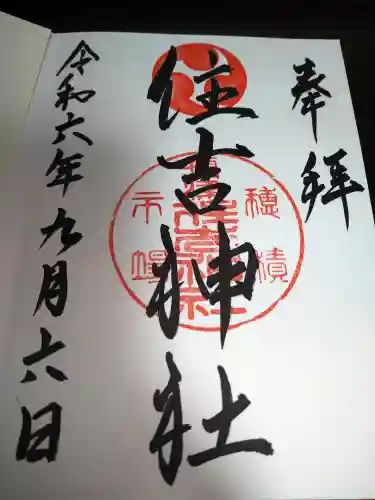 奉拝
住吉神社
令和六年九月六日
穂積
市場
住吉神社